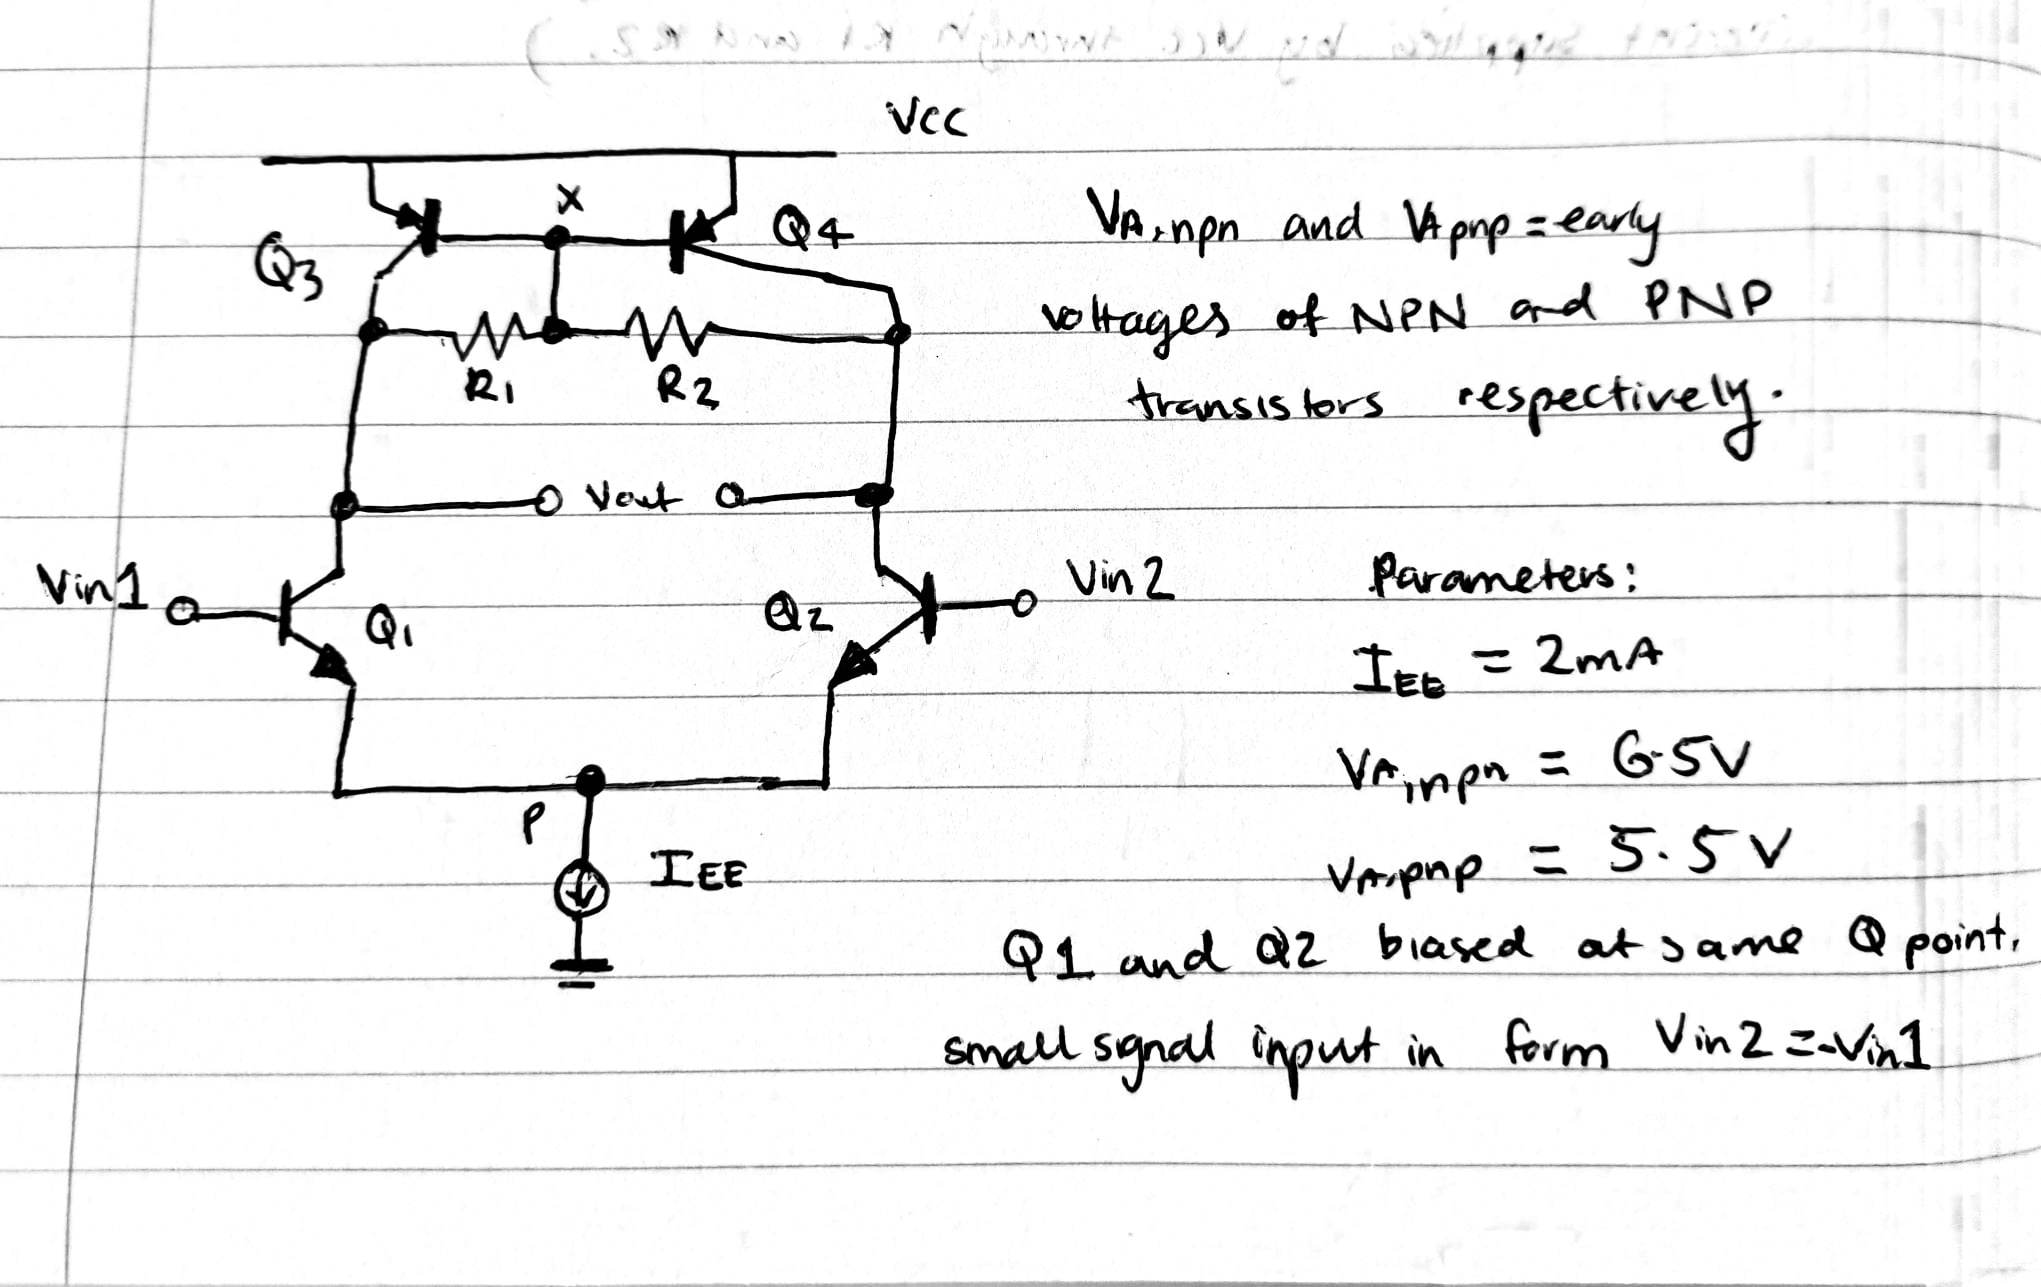 VCC
X
Q3
Q4
VA,npn and VApnp = early
voltages of NPN and PNP
transistors respectively.
R1
R2
Vout
Vin1
Q1
Q2
Vin2
Parameters:
IEE = 2mA
VA,npn = 6.5V
VA,pnp = 5.5V
P
IEE
Q1 and Q2 biased at same Q point.
small signal input in form Vin2 = -Vin1